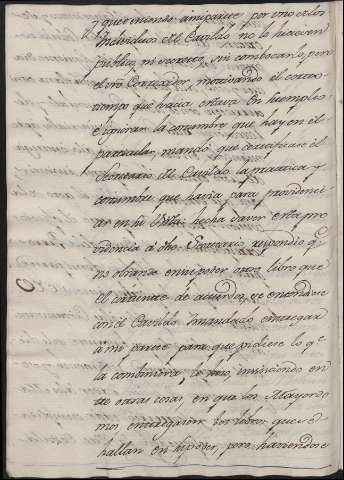 y queriendo mi parte por uno de los
Individuos del Cavildo no lo hicieron
publico, ni secreto, sin combocarlo, pero
el dho Corregidor, motivando el corto
tiempo que hacia estava en su empleo
è ignorar la costumbre que hay en el
particular, mandó que certificase el
Secretario del Cavildo la practica y
costumbre que havia para providenci
ar en su Vista: hecha saver esta pro
videncia à dho Secretario, respondio qe
no obrando en su poder otro libro que
el corriente de acuerdos, se entendiese
con el Cavildo mandado entregar
a mi parte para que pidiese lo qe
la combiniera, lo hizo, insinuando en
tre otras cosas, en que los Mayordo
mos entregasen los libros que se
hallan en su poder, pero haviendose